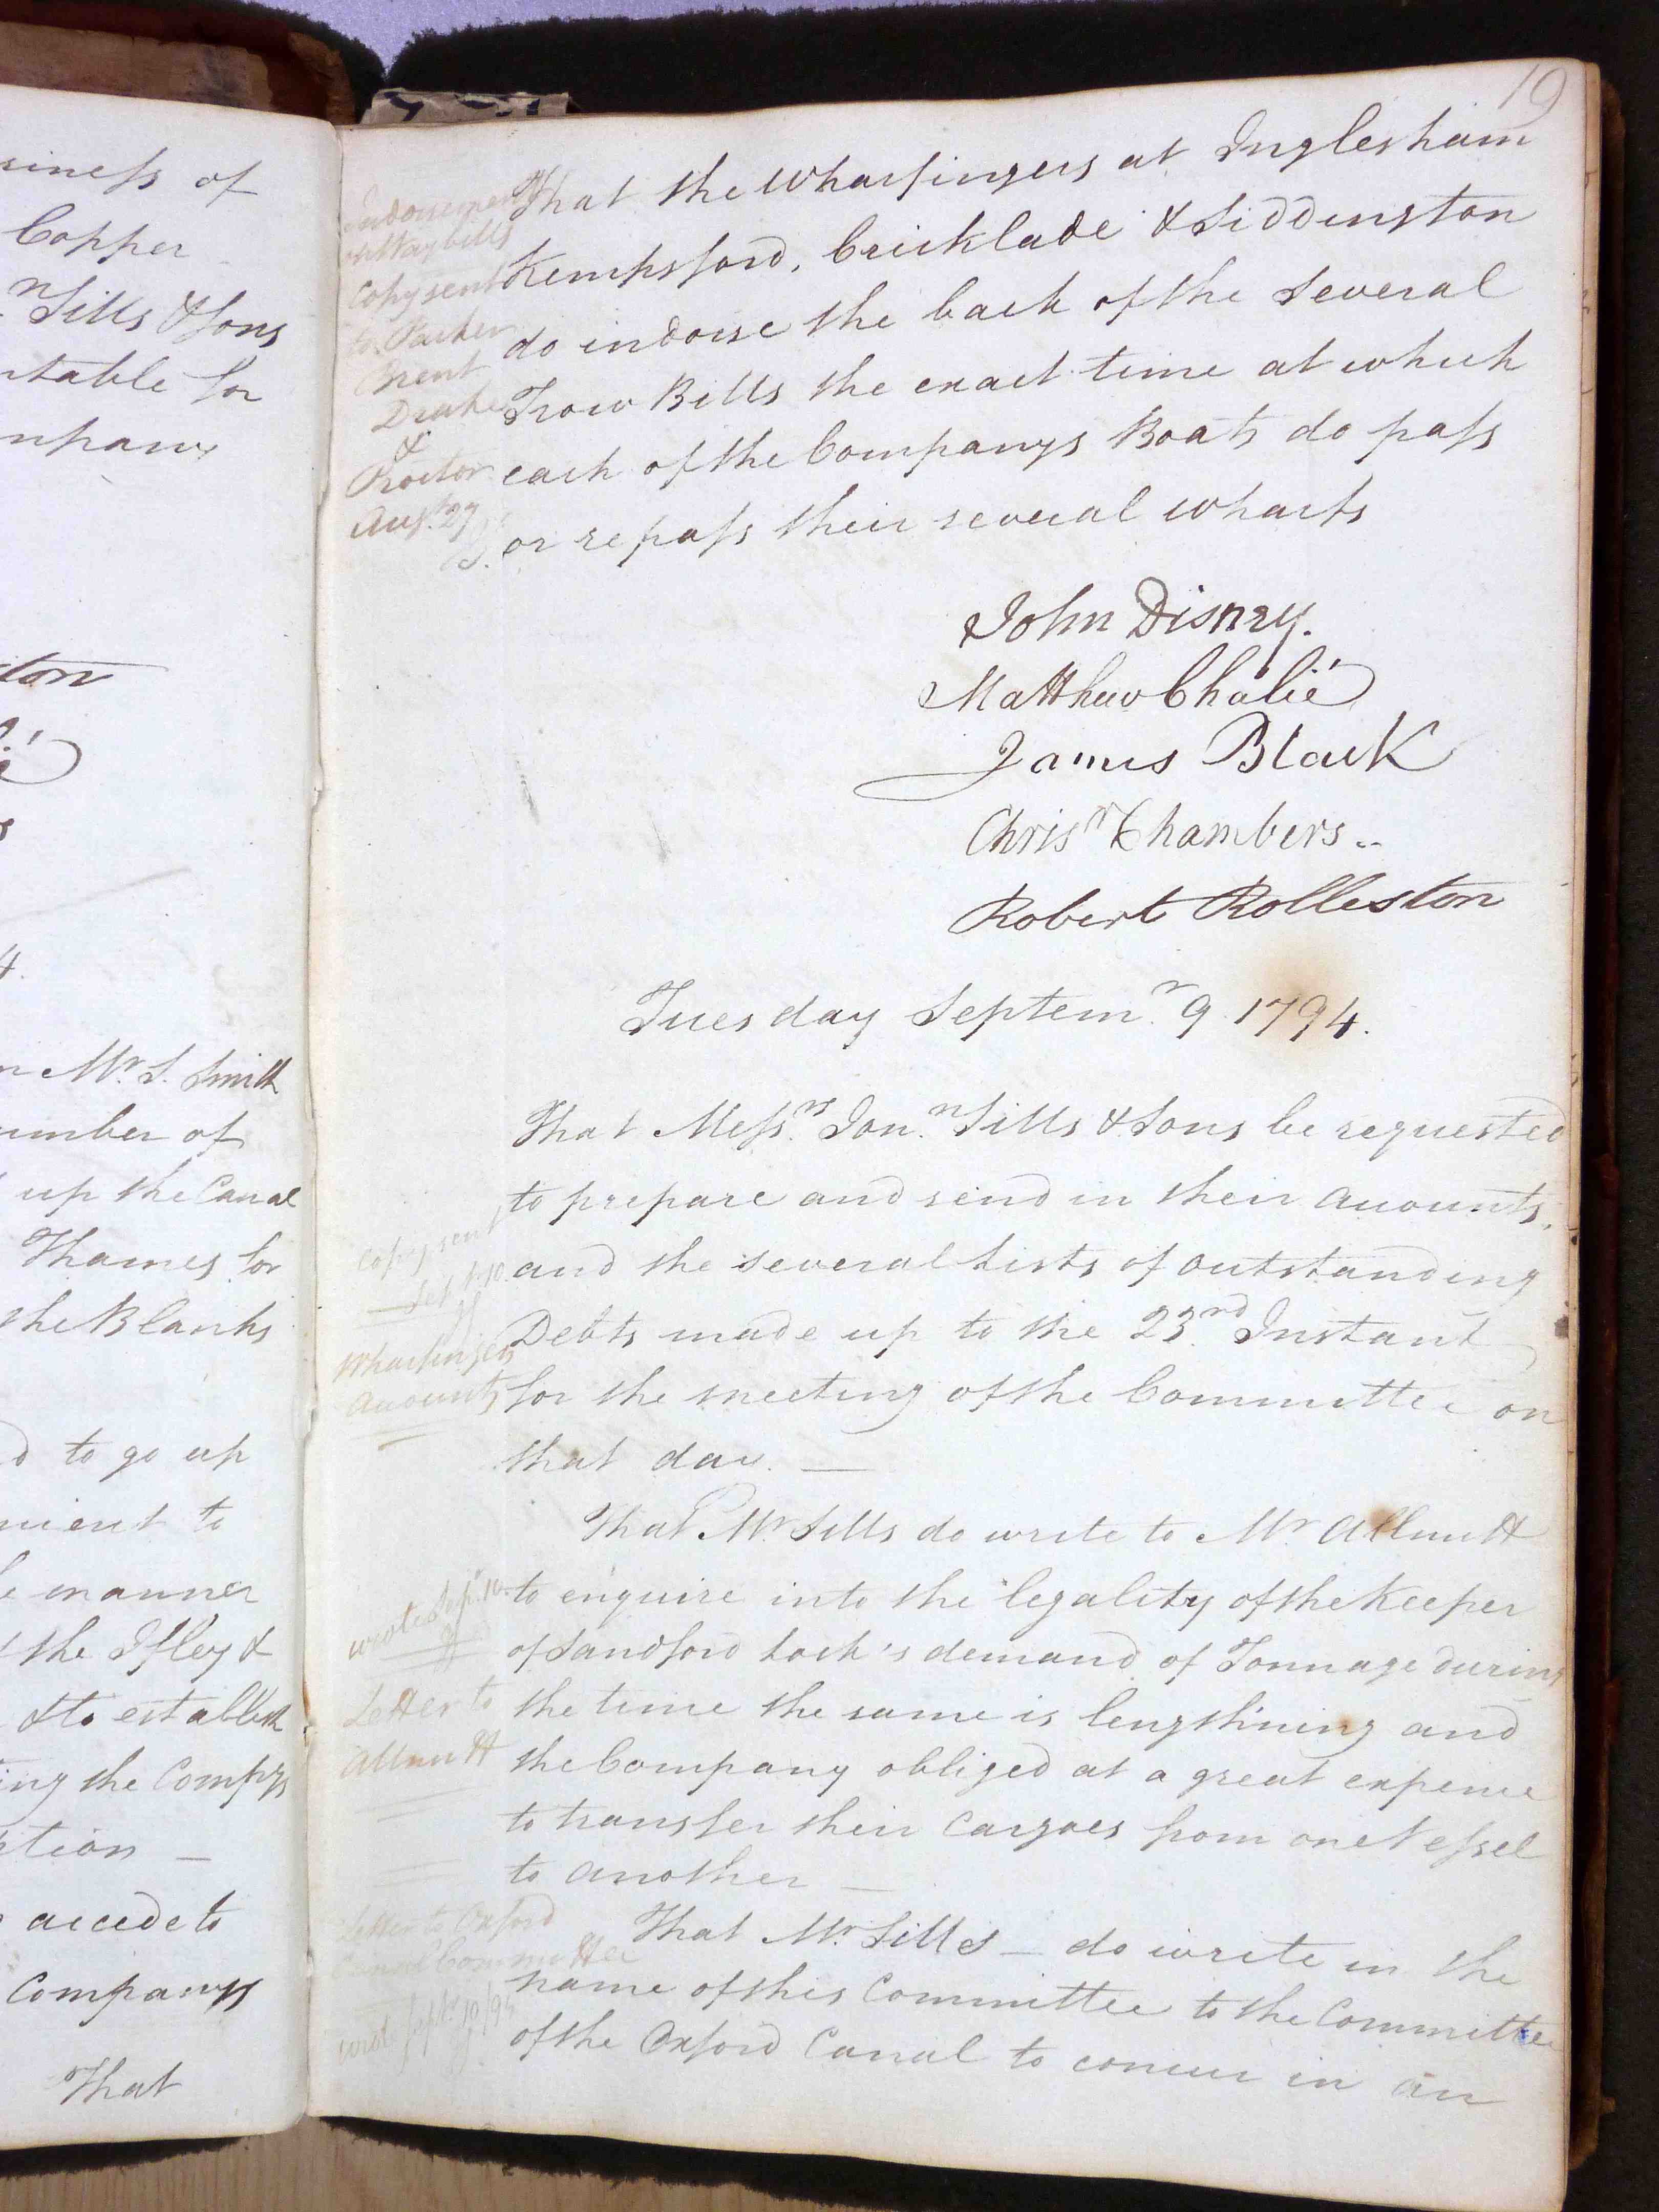 siness of
Copper
n Sills & Sons
table for
mpany
ton
4.
Mr. S. Smith
umber of
up the Canal
Thames for
the Blanks
d to go up
nient to
manner
the Ifley &
& to establish
ing the Compys
ption —
accede to
Companys
That
19
Indorsement
on Way bills
Copy sent
to Parker
Brent
Drake
&
Proctor
Augt. 27
That the Wharfingers at Inglesham
Kempsford, Cricklade & Siddington
do indorse the back of the Several
Trow Bills the exact time at which
each of the Companys Boats do pass
or repass their several wharfs
John Disney.
Matthew Chalié
James Black
Chrisr Chambers..
Robert Rolleston
Tuesday Septemr. 9 1794.
copy sent
Sept. 10.
Wharfingers
accounts
That Messrs. Jonn. Sills & Sons be requested
to prepare and send in their accounts,
and the several Lists of outstanding
Debts made up to the 23rd. Instant
for the meeting of the Committee on
that day. —
wrote Sep. 10.
Letter to
Allnutt
That Mr. Sills do write to Mr. Allnutt
to enquire into the legality of the Keeper
of Sandford Lock's demand of Tonnage during
the time the same is lengthining and
the Company obliged at a great expence
to transfer their Cargoes from one Vessel
to another —
Letter to Oxford
Canal Committee
wrote Sept. 10/94
That Mr. Sills — do write in the
name of this Committee to the Committee
of the Oxford Canal to concur in an